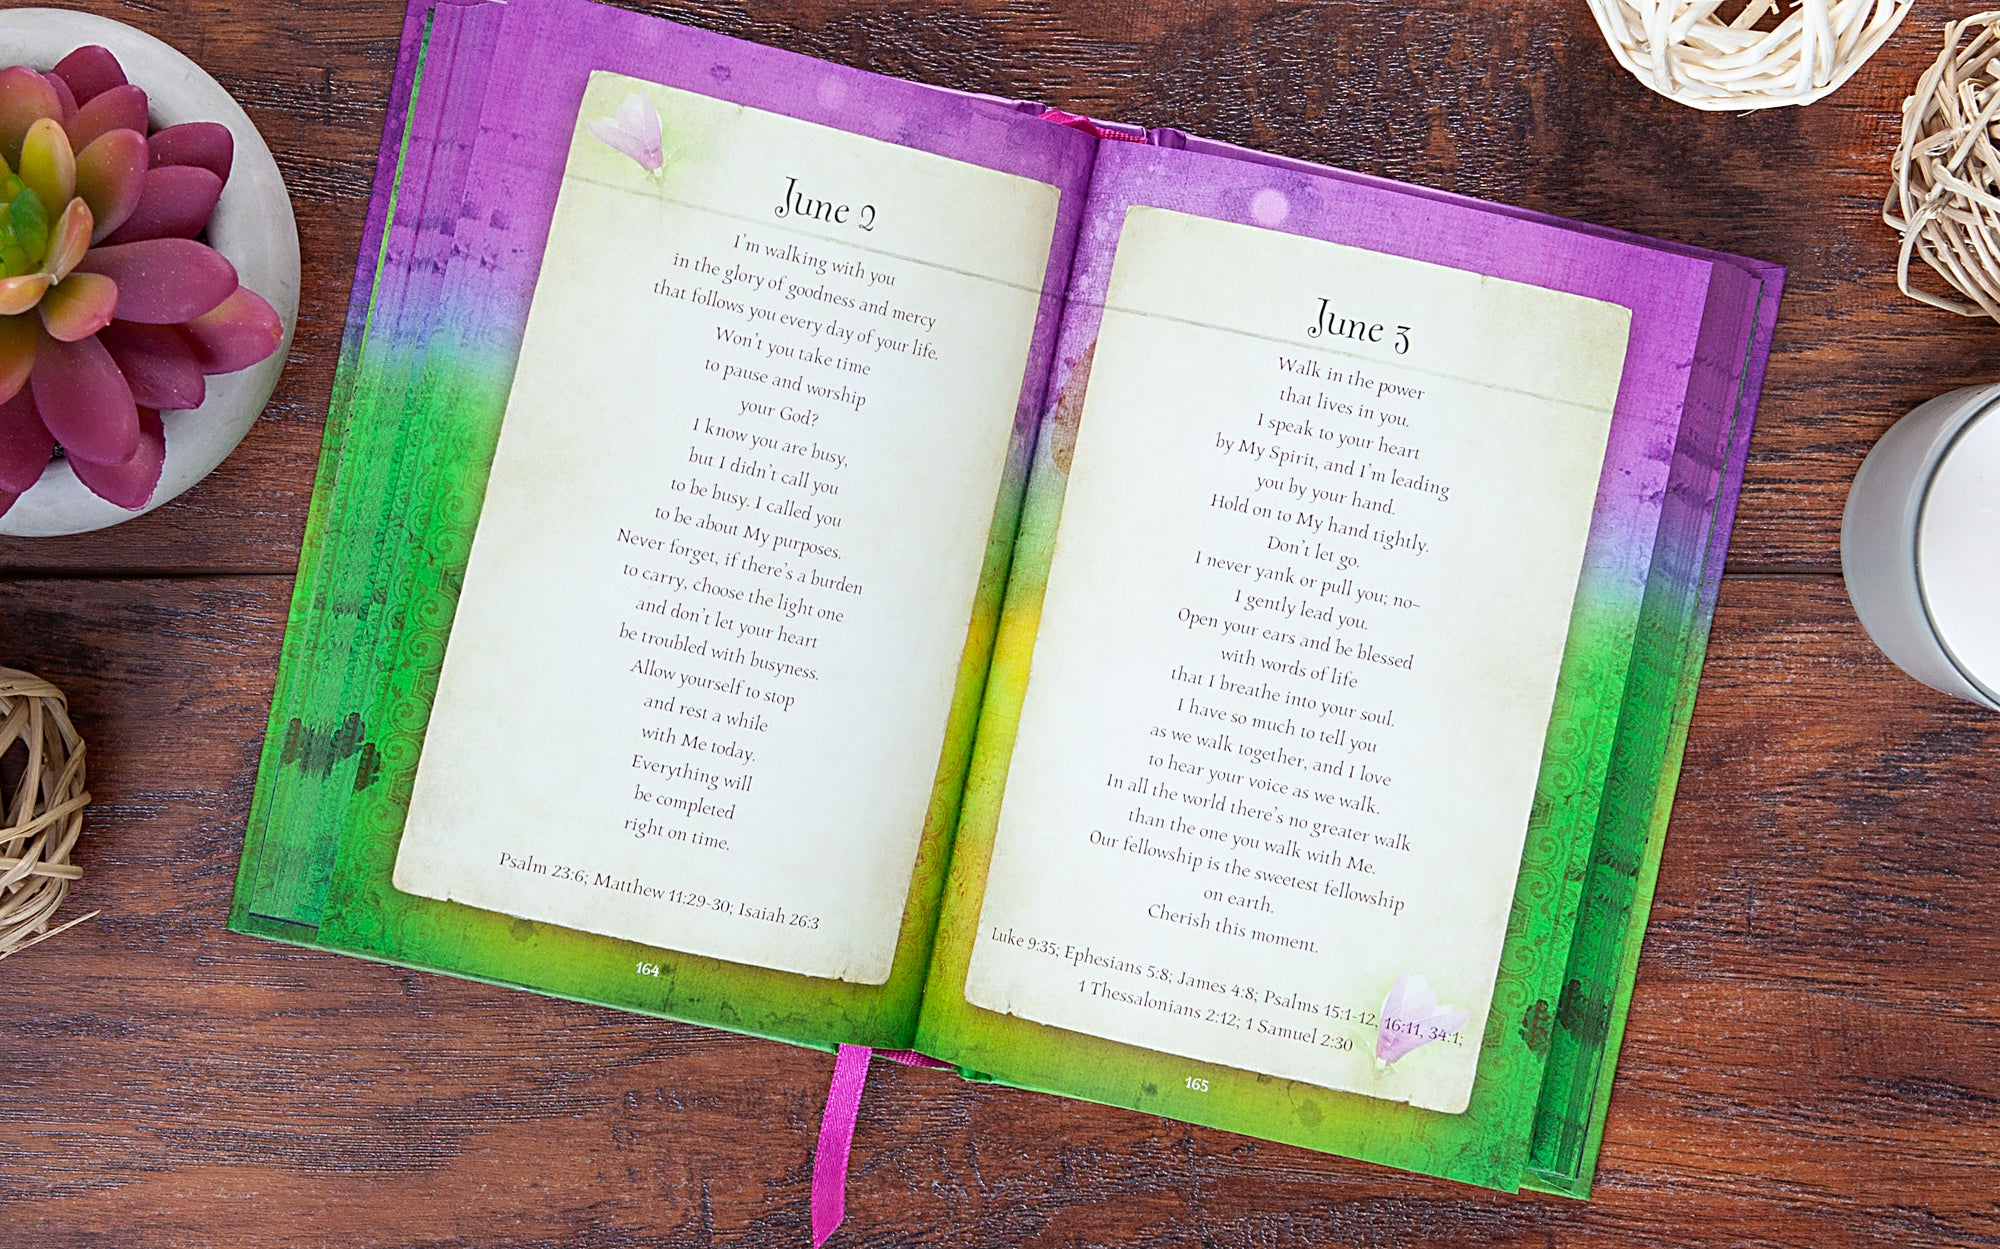 June 2
I'm walking with you
in the glory of goodness and mercy
that follows you every day of your life.
Won't you take time
to pause and worship
your God?
I know you are busy,
but I didn't call you
to be busy. I called you
to be about My purposes.
Never forget, if there's a burden
to carry, choose the light one
and don't let your heart
be troubled with busyness.
Allow yourself to stop
and rest a while
with Me today.
Everything will
be completed
right on time.
Psalm 23:6; Matthew 11:29-30; Isaiah 26:3
164
June 3
Walk in the power
that lives in you.
I speak to your heart
by My Spirit, and I'm leading
you by your hand.
Hold on to My hand tightly.
Don't let go.
I never yank or pull you; no–
I gently lead you.
Open your ears and be blessed
with words of life
that I breathe into your soul.
I have so much to tell you
as we walk together, and I love
to hear your voice as we walk.
In all the world there's no greater walk
than the one you walk with Me.
Our fellowship is the sweetest fellowship
on earth.
Cherish this moment.
Luke 9:35; Ephesians 5:8; James 4:8; Psalms 15:1-12, 16:11, 34:1;
1 Thessalonians 2:12; 1 Samuel 2:30
165